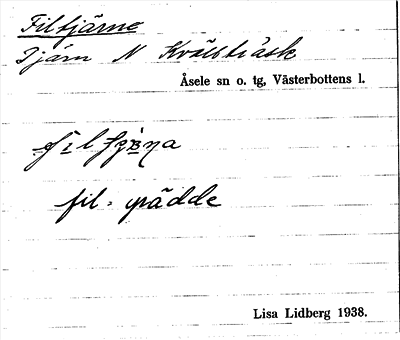 Filtjärne
Tjärn N Kvällträsk
Åsele sn o. tg, Västerbottens l.
fil. grädde
Lisa Lidberg 1938.